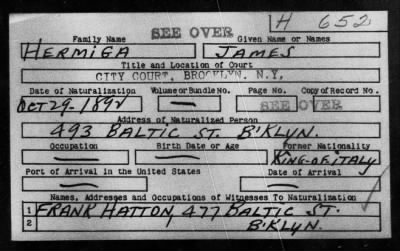 H 652
SEE OVER
Family Name Given Name or Names
HERMIGA JAMES
Title and Location of Court
CITY COURT, BROOKLYN. N.Y,
Date of Naturalization Volume or Bundle No. Page No. Copy of Record No.
OCT 29-1892 — SEE OVER
Address of Naturalized Person
493 BALTIC ST. B'KLYN.
Occupation Birth Date or Age Former Nationality
— — KING-OF ITALY
Port of Arrival in the United States Date of Arrival
— —
Names, Addresses and Occupations of Witnesses To Naturalization
1 FRANK HATTON, 477 BALTIC ST.
2 B'KLYN.